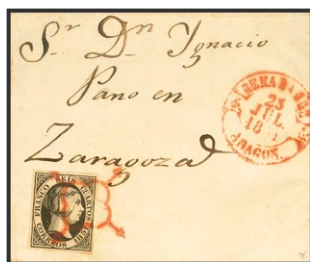 Sr. Dn Ygnacio
Pano en
Zaragoza
23
JUL.
ARAGON.
FRANCO SEIS CUARTOS
CORREOS 1851